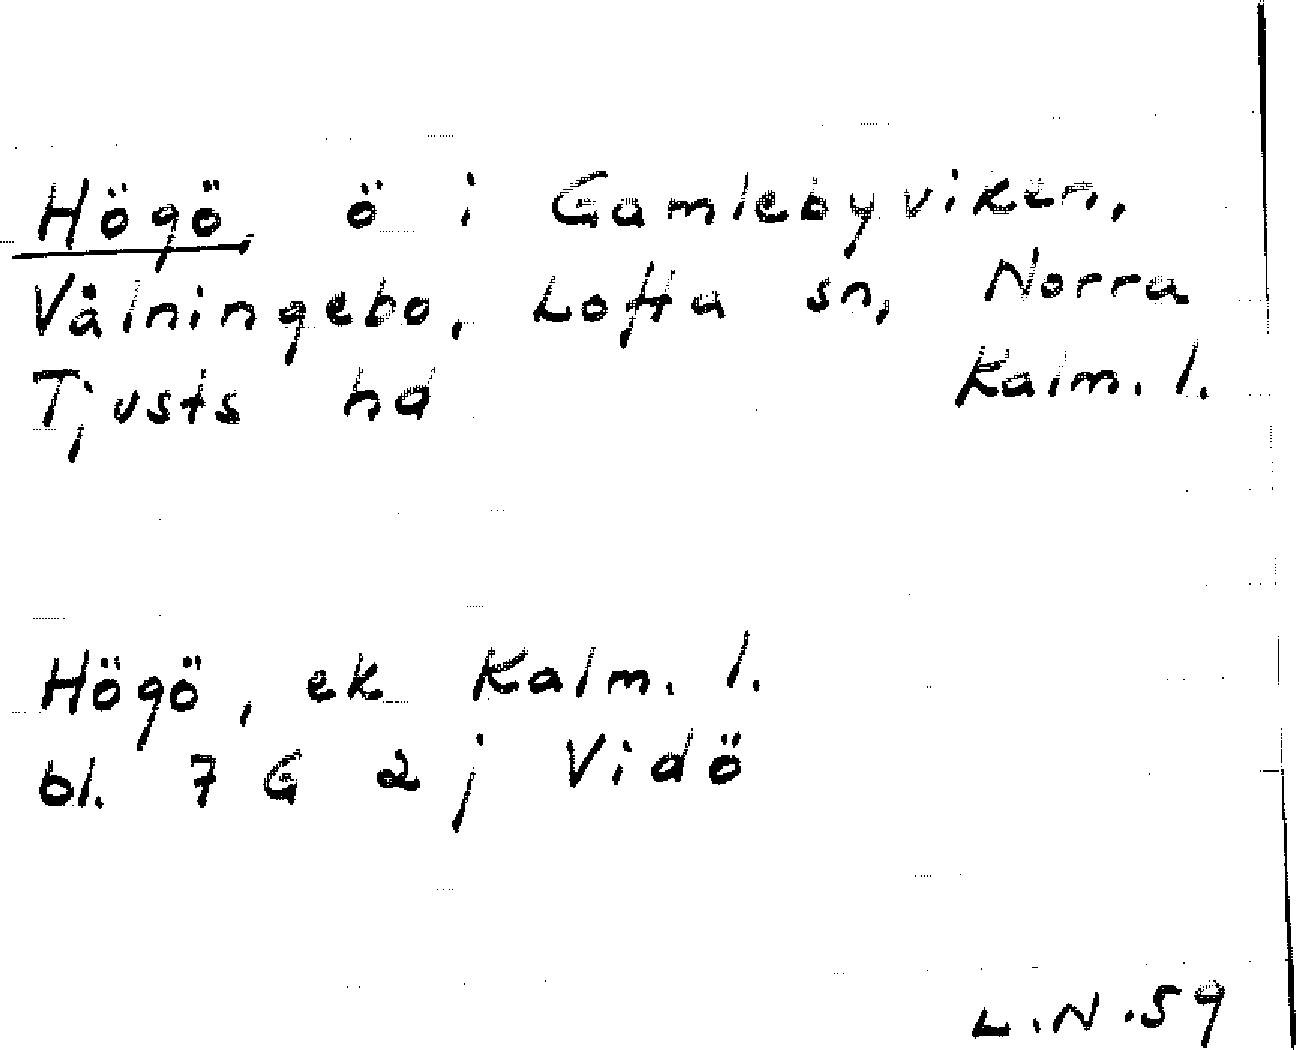 Högö, ö i Gamlebyviken,
Vålningebo, Lofta sn, Norra
Tjusts hd Kalm. l.
Högö, ek Kalm. l.
bl. 7 G 2 j Vidö
L.N.59